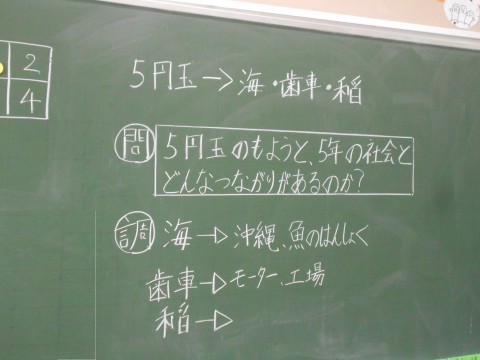 2
4
5円玉→海・歯車・稲
問 5円玉のもようと、5年の社会と
どんなつながりがあるのか?
調 海→沖縄、魚のはんしょく
歯車→モーター、工場
稲→